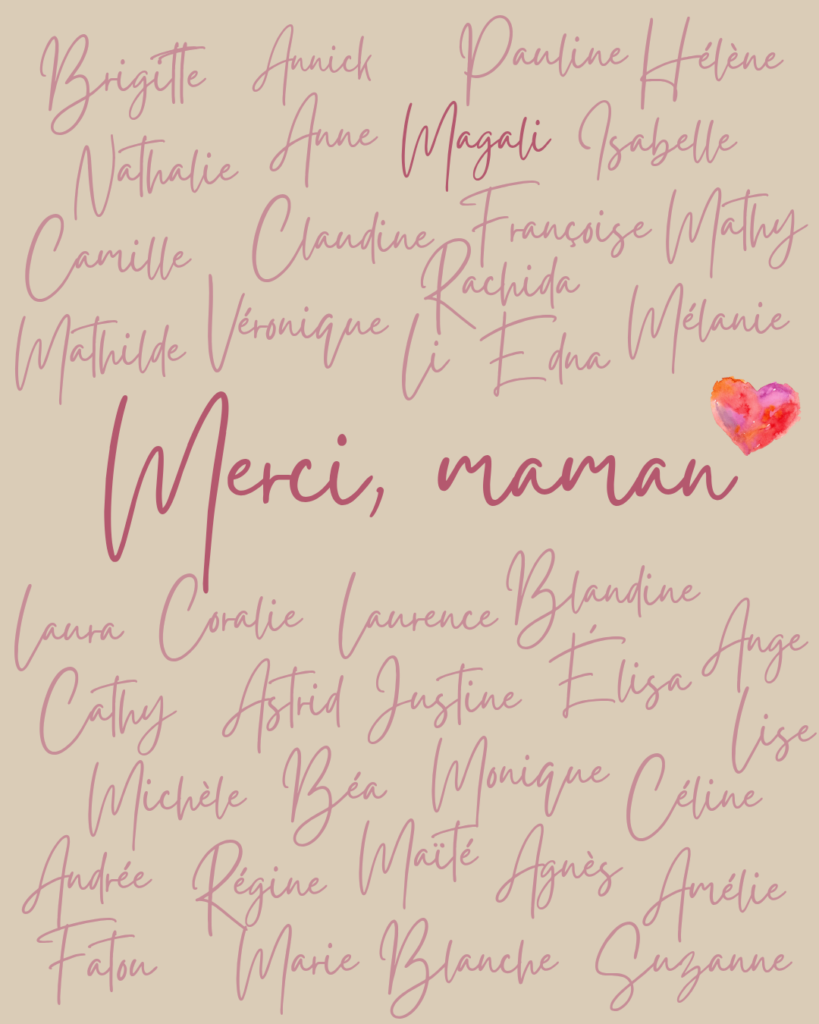 Brigitte Annick Pauline Hélène
Nathalie Anne Magali Isabelle
Camille Claudine Françoise Mathy
Rachida
Mathilde Véronique Li Edna Mélanie
Merci, maman
Laura Coralie Laurence Blandine
Ange
Cathy Astrid Justine Élisa
Lise
Michèle Béa Monique Céline
Andrée Régine Maïté Agnès Amélie
Fatou Marie Blanche Suzanne